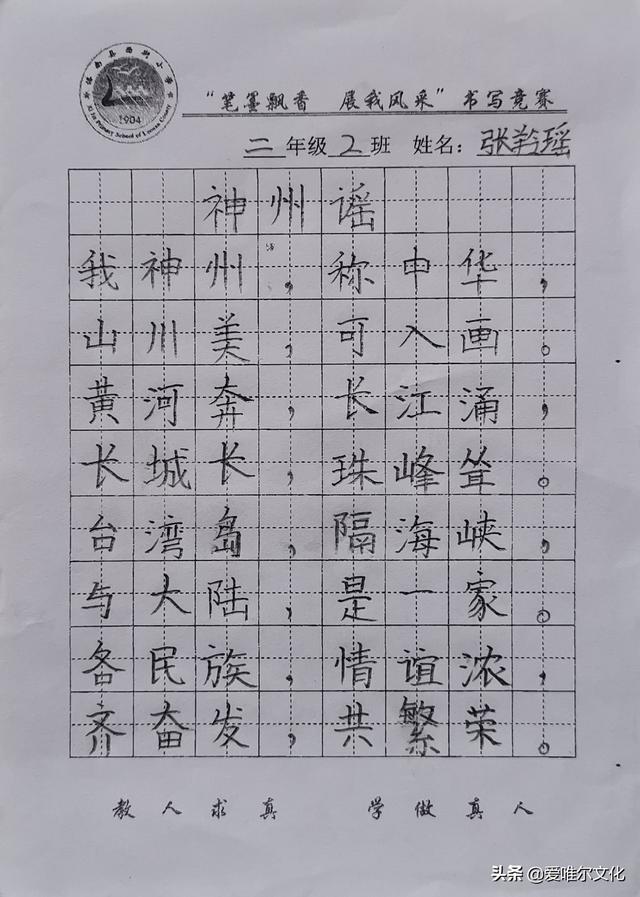 “笔墨飘香 展我风采”书写竞赛
二年级2班 姓名：张羚瑶
神州谣
我神州，称中华，
山川美，可入画。
黄河奔，长江涌，
长城长，珠峰耸。
台湾岛，隔海峡，
与大陆，是一家。
各民族，情谊浓，
齐奋发，共繁荣。
教人求真 学做真人
1904
头条 @爱唯尔文化